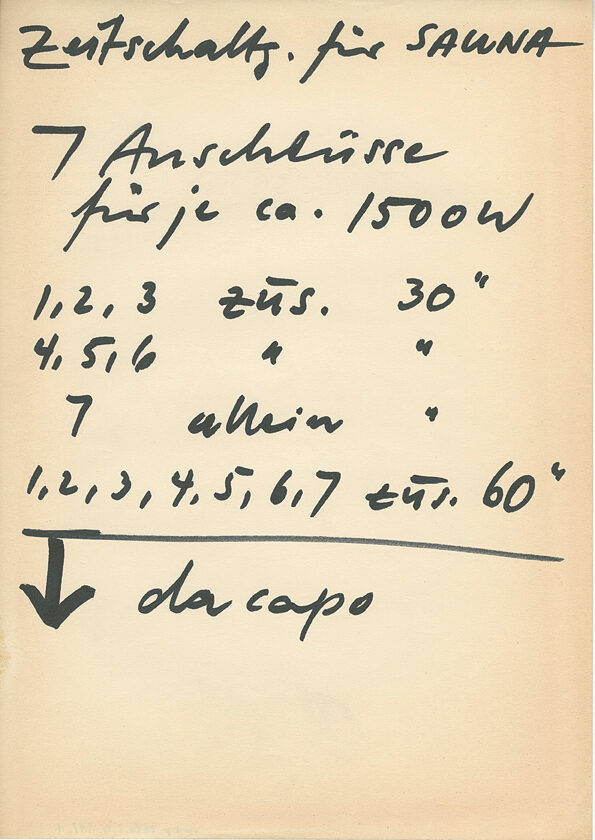 Zeitschaltg. für SAUNA
7 Anschlüsse
für je ca. 1500W
1, 2, 3 zus. 30"
4, 5, 6 " "
7 allein "
1, 2, 3, 4, 5, 6, 7 zus. 60"
da capo